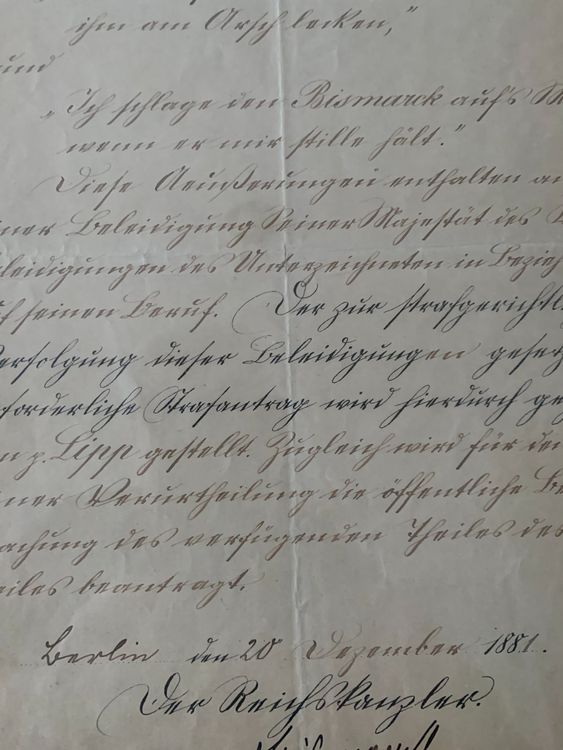 ihm am Arsch lecken,"
und
„Ich schlage den Bismarck auf's M
wenn er mir stille hält."
Diese Aeußerungen enthalten au
iner Beleidigung Seiner Majestät des
leidigungen des Unterzeichneten in Bezieh
uf seinen Beruf. Der zur strafgerichtl
erfolgung dieser Beleidigungen geset
forderliche Strafantrag wird hierdurch ge
n p. Lipp gestellt. Zugleich wird für den
iner Verurtheilung die öffentliche Be
achung des verfügenden Theiles des
eiles beantragt.
Berlin den 20 Dezember 1881.
Der Reichskanzler.